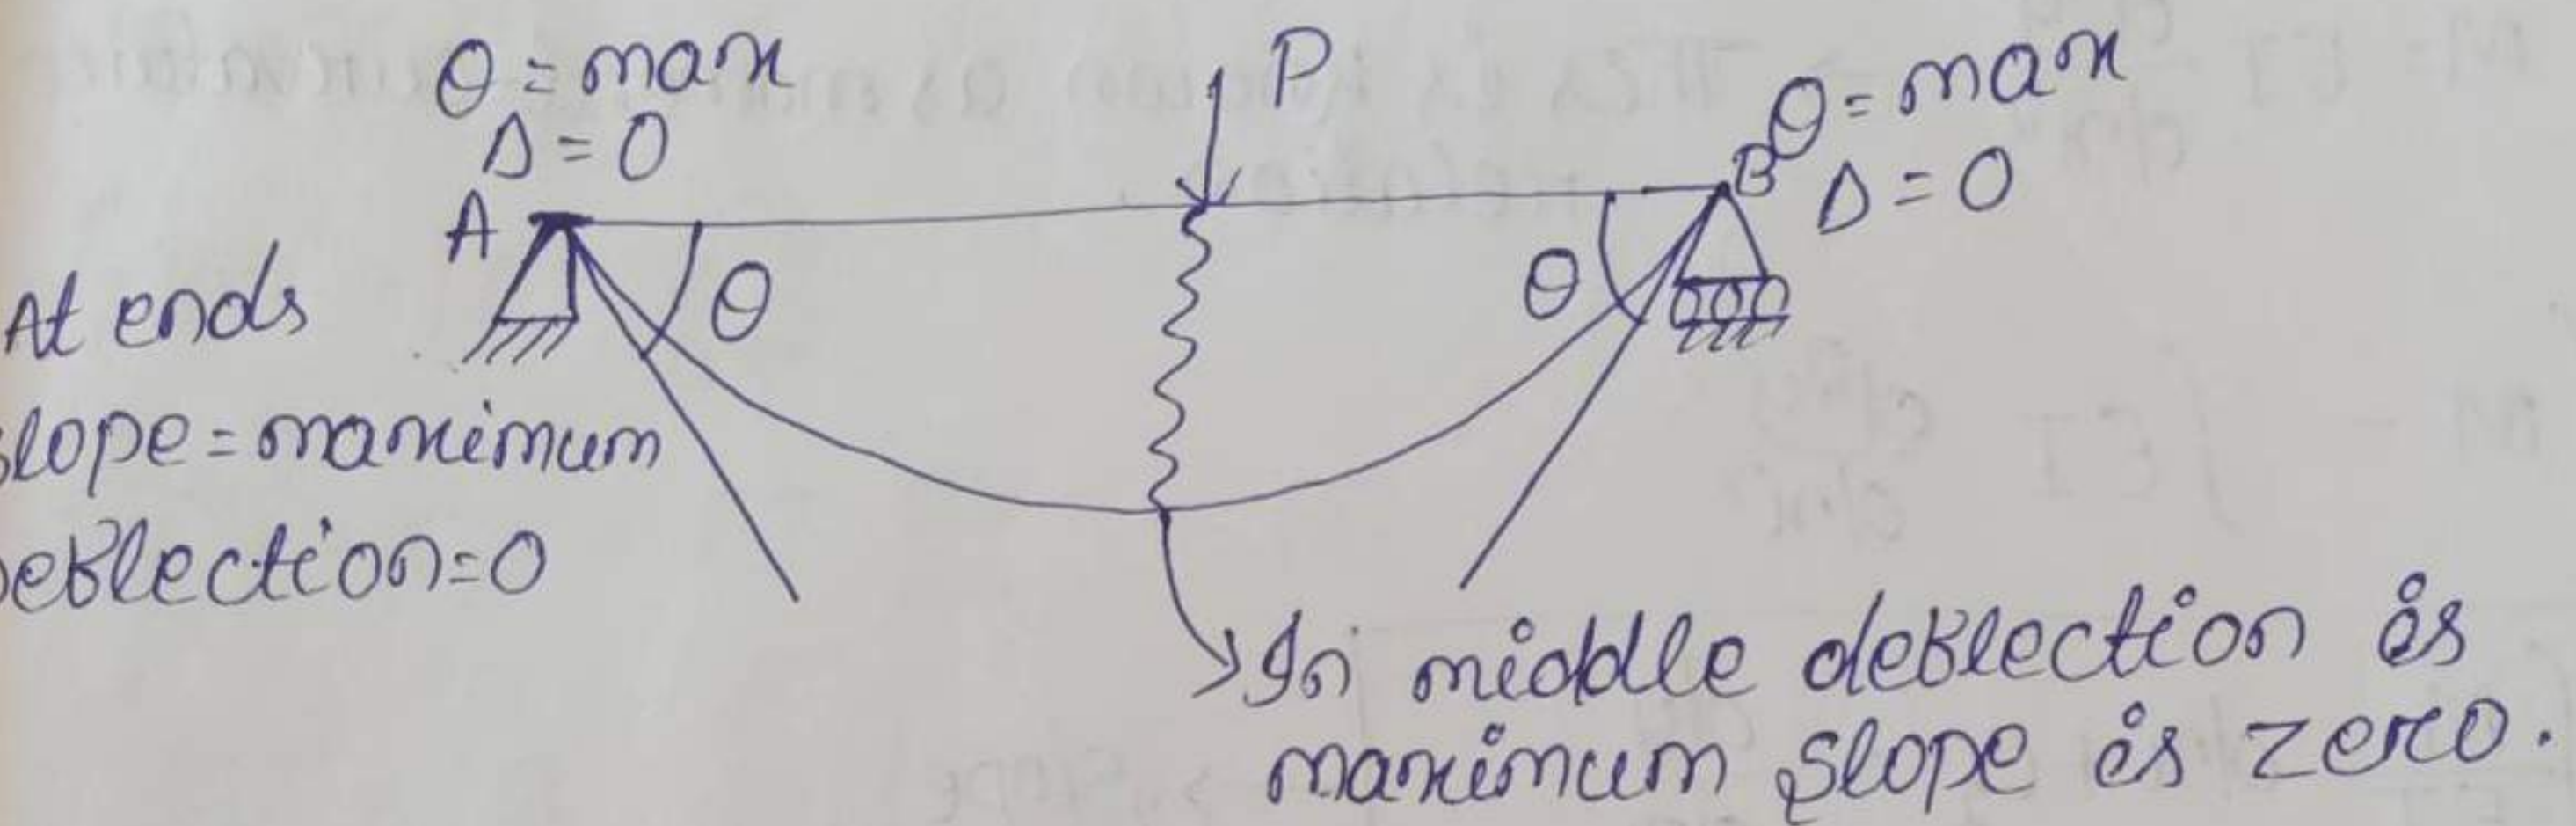 θ = max
Δ = 0
P
θ = max
Δ = 0
A
B
θ
θ
At ends
slope = maximum
Deflection = 0
In middle deflection is
maximum slope is zero.